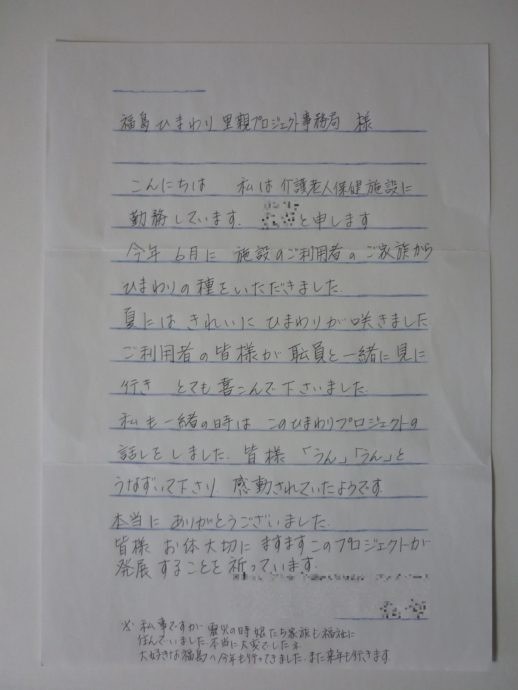 福島ひまわり里親プロジェクト事務局 様
こんにちは 私は介護老人保健施設に
勤務しています. と申します
今年 6月に 施設のご利用者のご家族から
ひまわりの種をいただきました.
夏には きれいに ひまわりが咲きました
ご利用者の皆様が 職員と一緒に見に
行き とても喜こんで下さいました.
私も一緒の時は このひまわりプロジェクトの
話しをしました. 皆様 「うん」「うん」と
うなずいて下さり. 感動されていたようです.
本当に ありがとうございました.
皆様 お体大切に ますますこのプロジェクトが
発展することを祈っています.
※ 私事ですが 震災の時 娘たち家族も福島に
住んでいました. 本当に大変でした
大好きな福島へ今年も行ってきました. また来年も行きます.